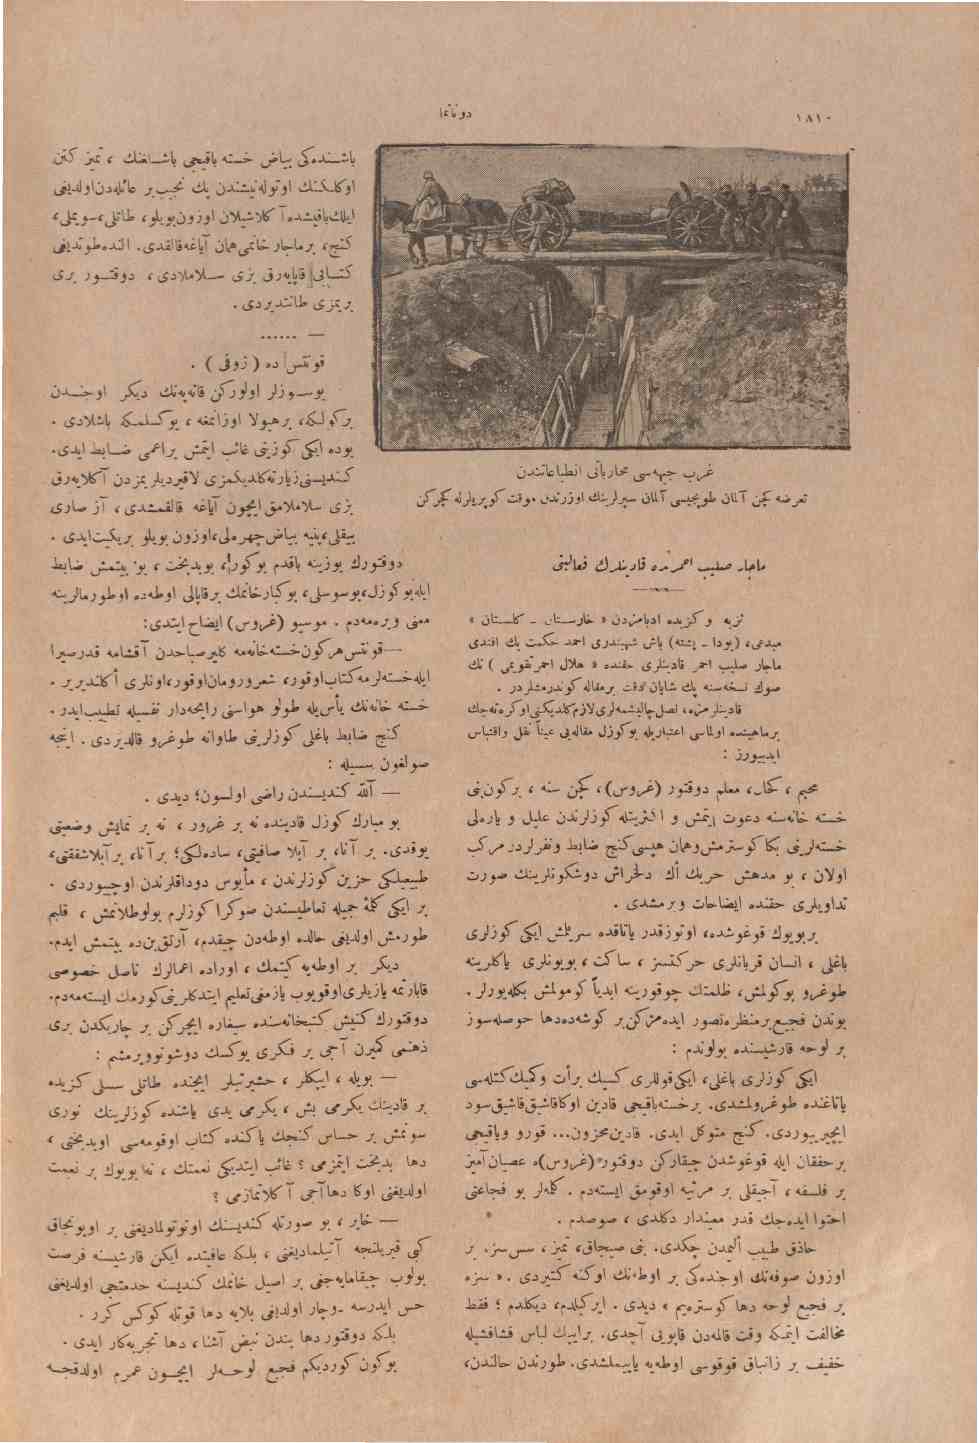 ١٨١٠
دونانما
غرب جبهه‌سی محارباتی انطباعاتندن
تعرضه کچن آلمان طوپجیسی آلمان سپرلرینك اوزرندن موقت کوپریلرله کچرکن
ماجار صلیب احمرنده قادینلرك فعالیتی
نزیه و کزیده ادبامزدن « خارستان ـ کلستان »
مبدعی، (بودا ـ پشته) باش شهبندری احمد حکمت بك افندی
ماجار صلیب احمر قادینلری حقنده « هلال احمر تقویمی » نك
صوك نسخه‌سنه پك شایان دقت بر مقاله کوندرمشلردر .
قادینلرمزه، نصل چالیشمه‌لری لازم کلدیکنی اوکره‌ته‌جك
بر ماهیتده اولماسی اعتباریله بو کوزل مقاله‌یی عیناً نقل و اقتباس
ایدییورز :
محبم ، کحال، معلم دوقتور (غروس)، کچن سنه ، برکون بنی
خسته خانه‌سنه دعوت ایتمش و اکثریتله کوزلرندن علیل و یاره‌لی
خسته‌لرینی بکا کوسترمش وهمان هپسی کنج ضابط ونفرلردن مرکب
اولان ، بو مدهش حربك اك دلخراش دوشکونلرینك صورت
تداویلری حقنده ایضاحات ویرمشدی .
بر بویوك قوغوشده، اوتوزقدر یاتاقده سریلمش ایکی کوزلری
باغلی ، انسان قربانلری حرکتسز ، ساکت ، بویونلری یاکلرینه
طوغرو بوکولمش، ظلمتك چوقورینه ابدیاً کومولمش بکله‌یورلر .
بوندن فجیع بر منظره تصور ایده‌مزکن بر کوشه‌ده دها حوصله‌سوز
بر لوحه قارشیسنده بولوندم :
ایکی کوزلری باغلی، ایکی قوللری کسیك بر أت وکمیك کتله‌سی
یاتاغنده طوغرولمشدی. برخسته‌باقیجی قادین اوکا قاشیق قاشیق سود
ایچیرییوردی. کنج متوکل ایدی. قادین محزون... قورو ویاقیجی
بر خفقان ایله قوغوشدن چیقارکن دوقتور (غروس)ه عصیان آمیز
بر فلسفه ، آجیقلی بر مرثیه اوقومق ایسته‌دم . کله‌لر بو فجاعتی
احتوا ایده‌جك قدر معیندار دکلدی ، صوصدم .
حاذق طبیب المدن چکدی. بنی صیجاق، تمیز ، سس سز، بر
اوزون صوفه‌نك اوجنده‌کی بر اوطه‌نك اوکنه کتیردی . « سزه
بر فجیع لوحه دها کوستره‌یم » دیدی . ایرکیلدم، دیکلدم ؛ فقط
مخالفت ایتمکه وقت قالمه‌دن قاپویی آچدی. برایپك لباس فشافشیله
خفیف بر زانباق قوقوسی اوطه‌یه یاییلمشدی. طورندن حالندن،
باشنده‌کی بیاض خسته باقیجی باشلغنك ، تمیز کتن
اوکلکنك اوتوله‌نیشندن پك نجیب بر عائله‌دن اولدیغی
ایلك باقیشده آکلاشیلان اوزون بویلو ، طاتلی، سویملی،
کنج، بر ماجار خانمی همان آیاغه قالقدی. النده طوتدیغی
کتابی قاپایه‌رق بزی سلاملادی ، دوقتور بزی
بریمزی طانتدیردی .
— ......
قونتس ده ( زوفی ) .
بو سوزلر اولورکن قانه‌په‌نك دیکر اوجندن
برکولکه، بر هیولا اوزانمغه ، یوکسلمکه باشلادی .
بوده ایکی کوزینی غائب ایتمش بر اعمی ضابط ایدی.
کندیسنی زیارته کلدیکمزی لاقیردیلریمزدن آکلایه‌رق
بزی سلاملامق ایچون آیاغه قالقمشدی ، آز صاری
بییقلی، پنبه بیاض چهره‌لی، اوزون بویلو بر یکیت ایدی .
دوقتورك یوزینه باقدم بو کور، بو بدبخت ، بو بیتمش ضابط
ایله بو کوزل، بو سوسلی، بو کبار خانمك بر قاپالی اوطه‌ده اوطورمالرینه
معنی ویره‌مه‌دم . موسیو (غروس) ایضاح ایتدی:
— قونتس هرکون خسته‌خانه‌مه کلیر صباحدن آقشامه قدر صیرا
ایله خسته‌لرمه کتاب اوقور، شعر و رومان اوقور، اونلری أکلندیریر .
خسته خانه‌نك یأس‌یله طولو هواسنی رایحه‌دار نفسیله تطییب ایدر .
کنج ضابط باغلی کوزلرینی طاوانه طوغرو قالدیردی . اینجه
صولغون سسیله :
— آللّه کندیسندن راضی اولسون؛ دیدی .
بو مبارك کوزل قادینده نه بر غرور ، نه بر نمایش وضعیتی
یوقدی. بر آنا، بر آبلا صافیتی، ساده‌لکی؛ بر آنا، بر آبلا شفقتی،
طبیعیلکی حزین کوزلرندن ، مأیوس دوداقلرندن اوچییوردی .
بر ایکی کلۀ جمیله تعاطیسندن صوکرا کوزلرم بولوطلانمش ، قلبم
طورمش اولدیغی حالده اوطه‌دن چیقدم، آرتق بن ده بیتمش ایدم.
دیکر بر اوطه‌یه کیتمك ، اوراده اعمالرك ناصل خصوصی
قابارتمه یازیلری اوقویوب یازمغی تعلیم ایتدکلرینی کورمك ایسته‌مه‌دم.
دوقتورك کنیش کتبخانه‌سنده سیغاره ایچرکن بر چاریکدن بری
ذهنمی کمیرن آجی بر فکری یوکسك دوشونوویرمشم :
— بویله ، ایپکلر ، خشیرتیلر ایچنده طاتلی سسلی کزیده
بر قادینك یکرمی بش ، یکرمی یدی یاشنده کوزلرینك نوری
سونمش بر حساس کنجك یاکنده کتاب اوقومه‌سی او بدبختی ،
دها بدبخت ایتمزمی ؟ غائب ایتدیکی نعمتك ، نه بویوك بر نعمت
اولدیغنی اوکا دها آجی آکلاتمازمی ؟
— خایر ، بو صورتله کندیسنك اونوتولمادیغنی بر اویونجاق
کبی قیریلنجه آتیلمادیغنی ، بلکه عافیتده ایکن قارشیسنه فرصت
بولوب چیقامایه‌جغی بر اصیل خانمك کندیسنه خدمتجی اولدیغنی
حس ایدرسه دوچار اولدیغی بلایه دها قوتله کوکس کرر .
بلکه دوقتور دها بندن نبض آشنا ، دها تجربه‌کار ایدی .
بوکون کوردیکم فجیع لوحه‌لر ایچون عمرم اولدقجه